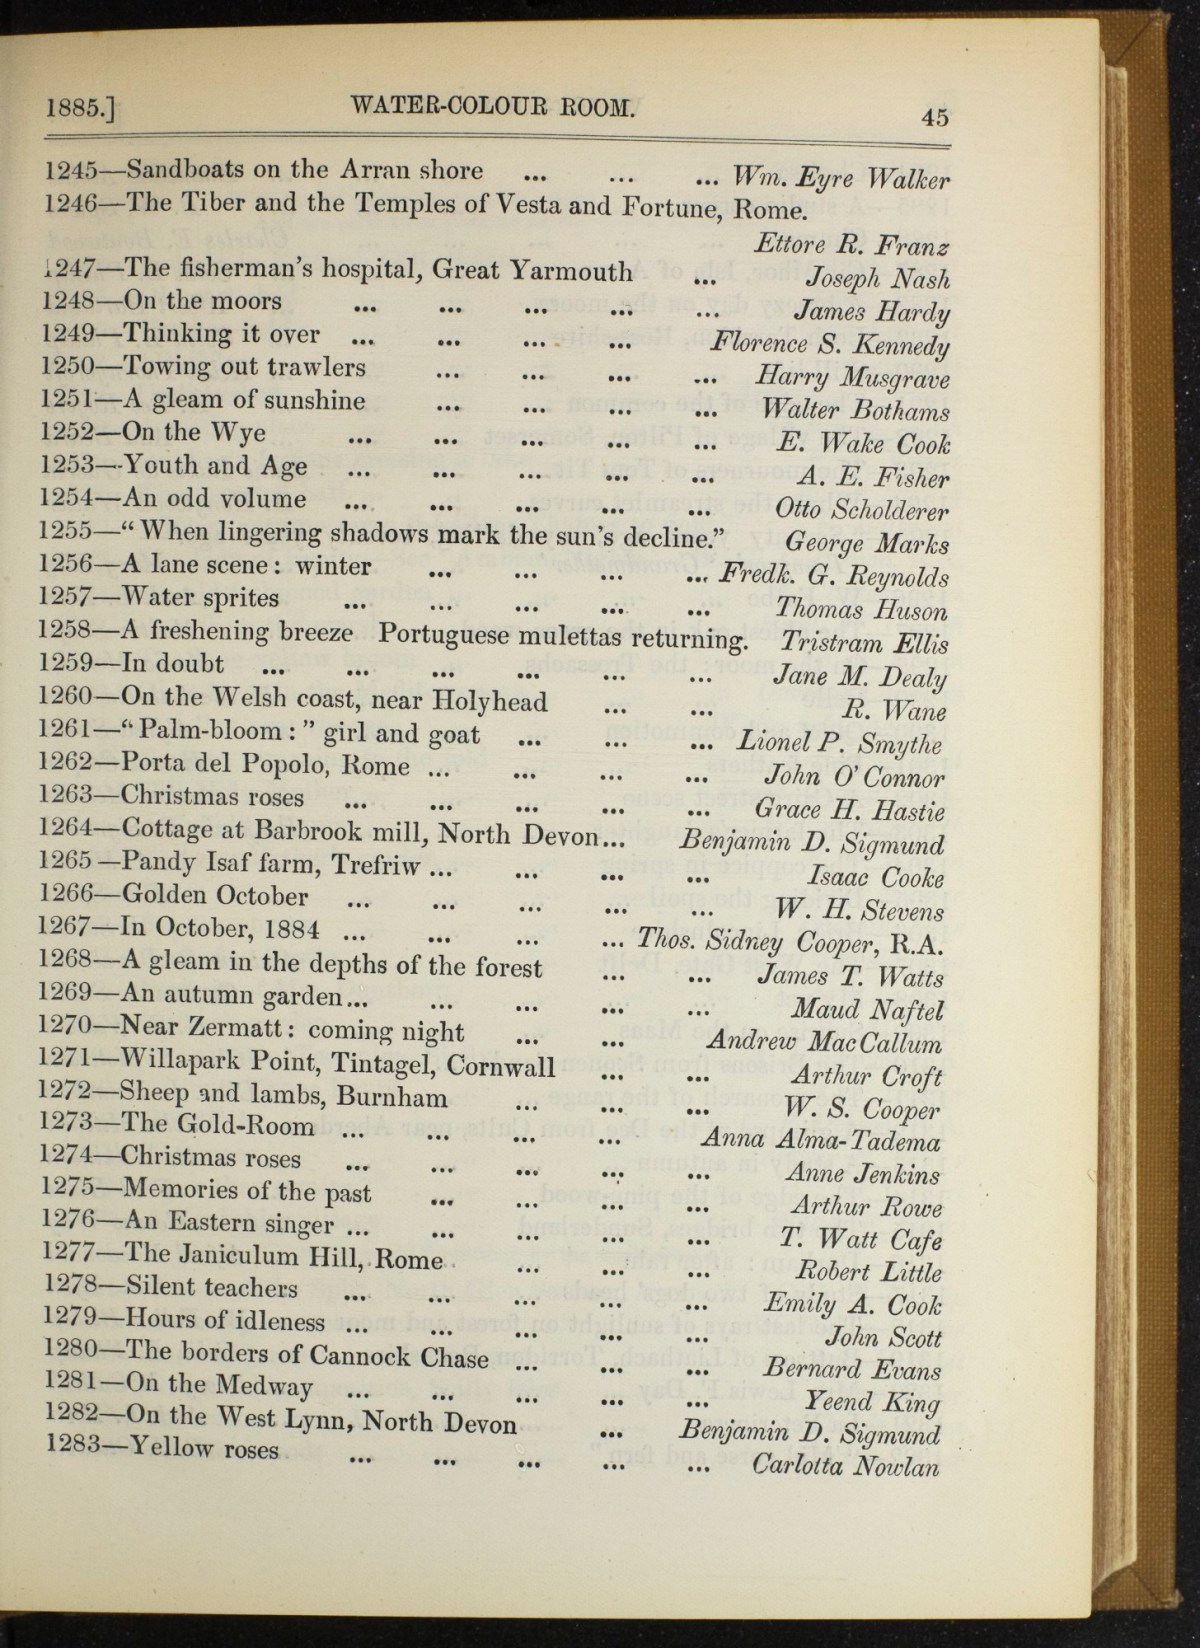 1885.] WATER-COLOUR ROOM. 45
1245—Sandboats on the Arran shore ... ... ... Wm. Eyre Walker
1246—The Tiber and the Temples of Vesta and Fortune, Rome.
Ettore R. Franz
1247—The fisherman's hospital, Great Yarmouth ... Joseph Nash
1248—On the moors ... ... ... ... ... James Hardy
1249—Thinking it over ... ... ... ... Florence S. Kennedy
1250—Towing out trawlers ... ... ... ... Harry Musgrave
1251—A gleam of sunshine ... ... ... ... Walter Bothams
1252—On the Wye ... ... ... ... ... E. Wake Cook
1253—Youth and Age ... ... ... ... ... A. E. Fisher
1254—An odd volume ... ... ... ... ... Otto Scholderer
1255—“When lingering shadows mark the sun's decline.” George Marks
1256—A lane scene: winter ... ... ... ... Fredk. G. Reynolds
1257—Water sprites ... ... ... ... ... Thomas Huson
1258—A freshening breeze Portuguese mulettas returning. Tristram Ellis
1259—In doubt ... ... ... ... ... ... Jane M. Dealy
1260—On the Welsh coast, near Holyhead ... ... R. Wane
1261—“Palm-bloom:” girl and goat ... ... ... Lionel P. Smythe
1262—Porta del Popolo, Rome ... ... ... ... John O'Connor
1263—Christmas roses ... ... ... ... ... Grace H. Hastie
1264—Cottage at Barbrook mill, North Devon... Benjamin D. Sigmund
1265—Pandy Isaf farm, Trefriw ... ... ... ... Isaac Cooke
1266—Golden October ... ... ... ... ... W. H. Stevens
1267—In October, 1884 ... ... ... ... Thos. Sidney Cooper, R.A.
1268—A gleam in the depths of the forest ... ... James T. Watts
1269—An autumn garden... ... ... ... ... Maud Naftel
1270—Near Zermatt: coming night ... ... Andrew MacCallum
1271—Willapark Point, Tintagel, Cornwall ... ... Arthur Croft
1272—Sheep and lambs, Burnham ... ... ... W. S. Cooper
1273—The Gold-Room ... ... ... ... Anna Alma-Tadema
1274—Christmas roses ... ... ... ... ... Anne Jenkins
1275—Memories of the past ... ... ... ... Arthur Rowe
1276—An Eastern singer ... ... ... ... ... T. Watt Cafe
1277—The Janiculum Hill, Rome ... ... ... Robert Little
1278—Silent teachers ... ... ... ... ... Emily A. Cook
1279—Hours of idleness ... ... ... ... ... John Scott
1280—The borders of Cannock Chase ... ... ... Bernard Evans
1281—On the Medway ... ... ... ... ... Yeend King
1282—On the West Lynn, North Devon ... Benjamin D. Sigmund
1283—Yellow roses ... ... ... ... ... Carlotta Nowlan